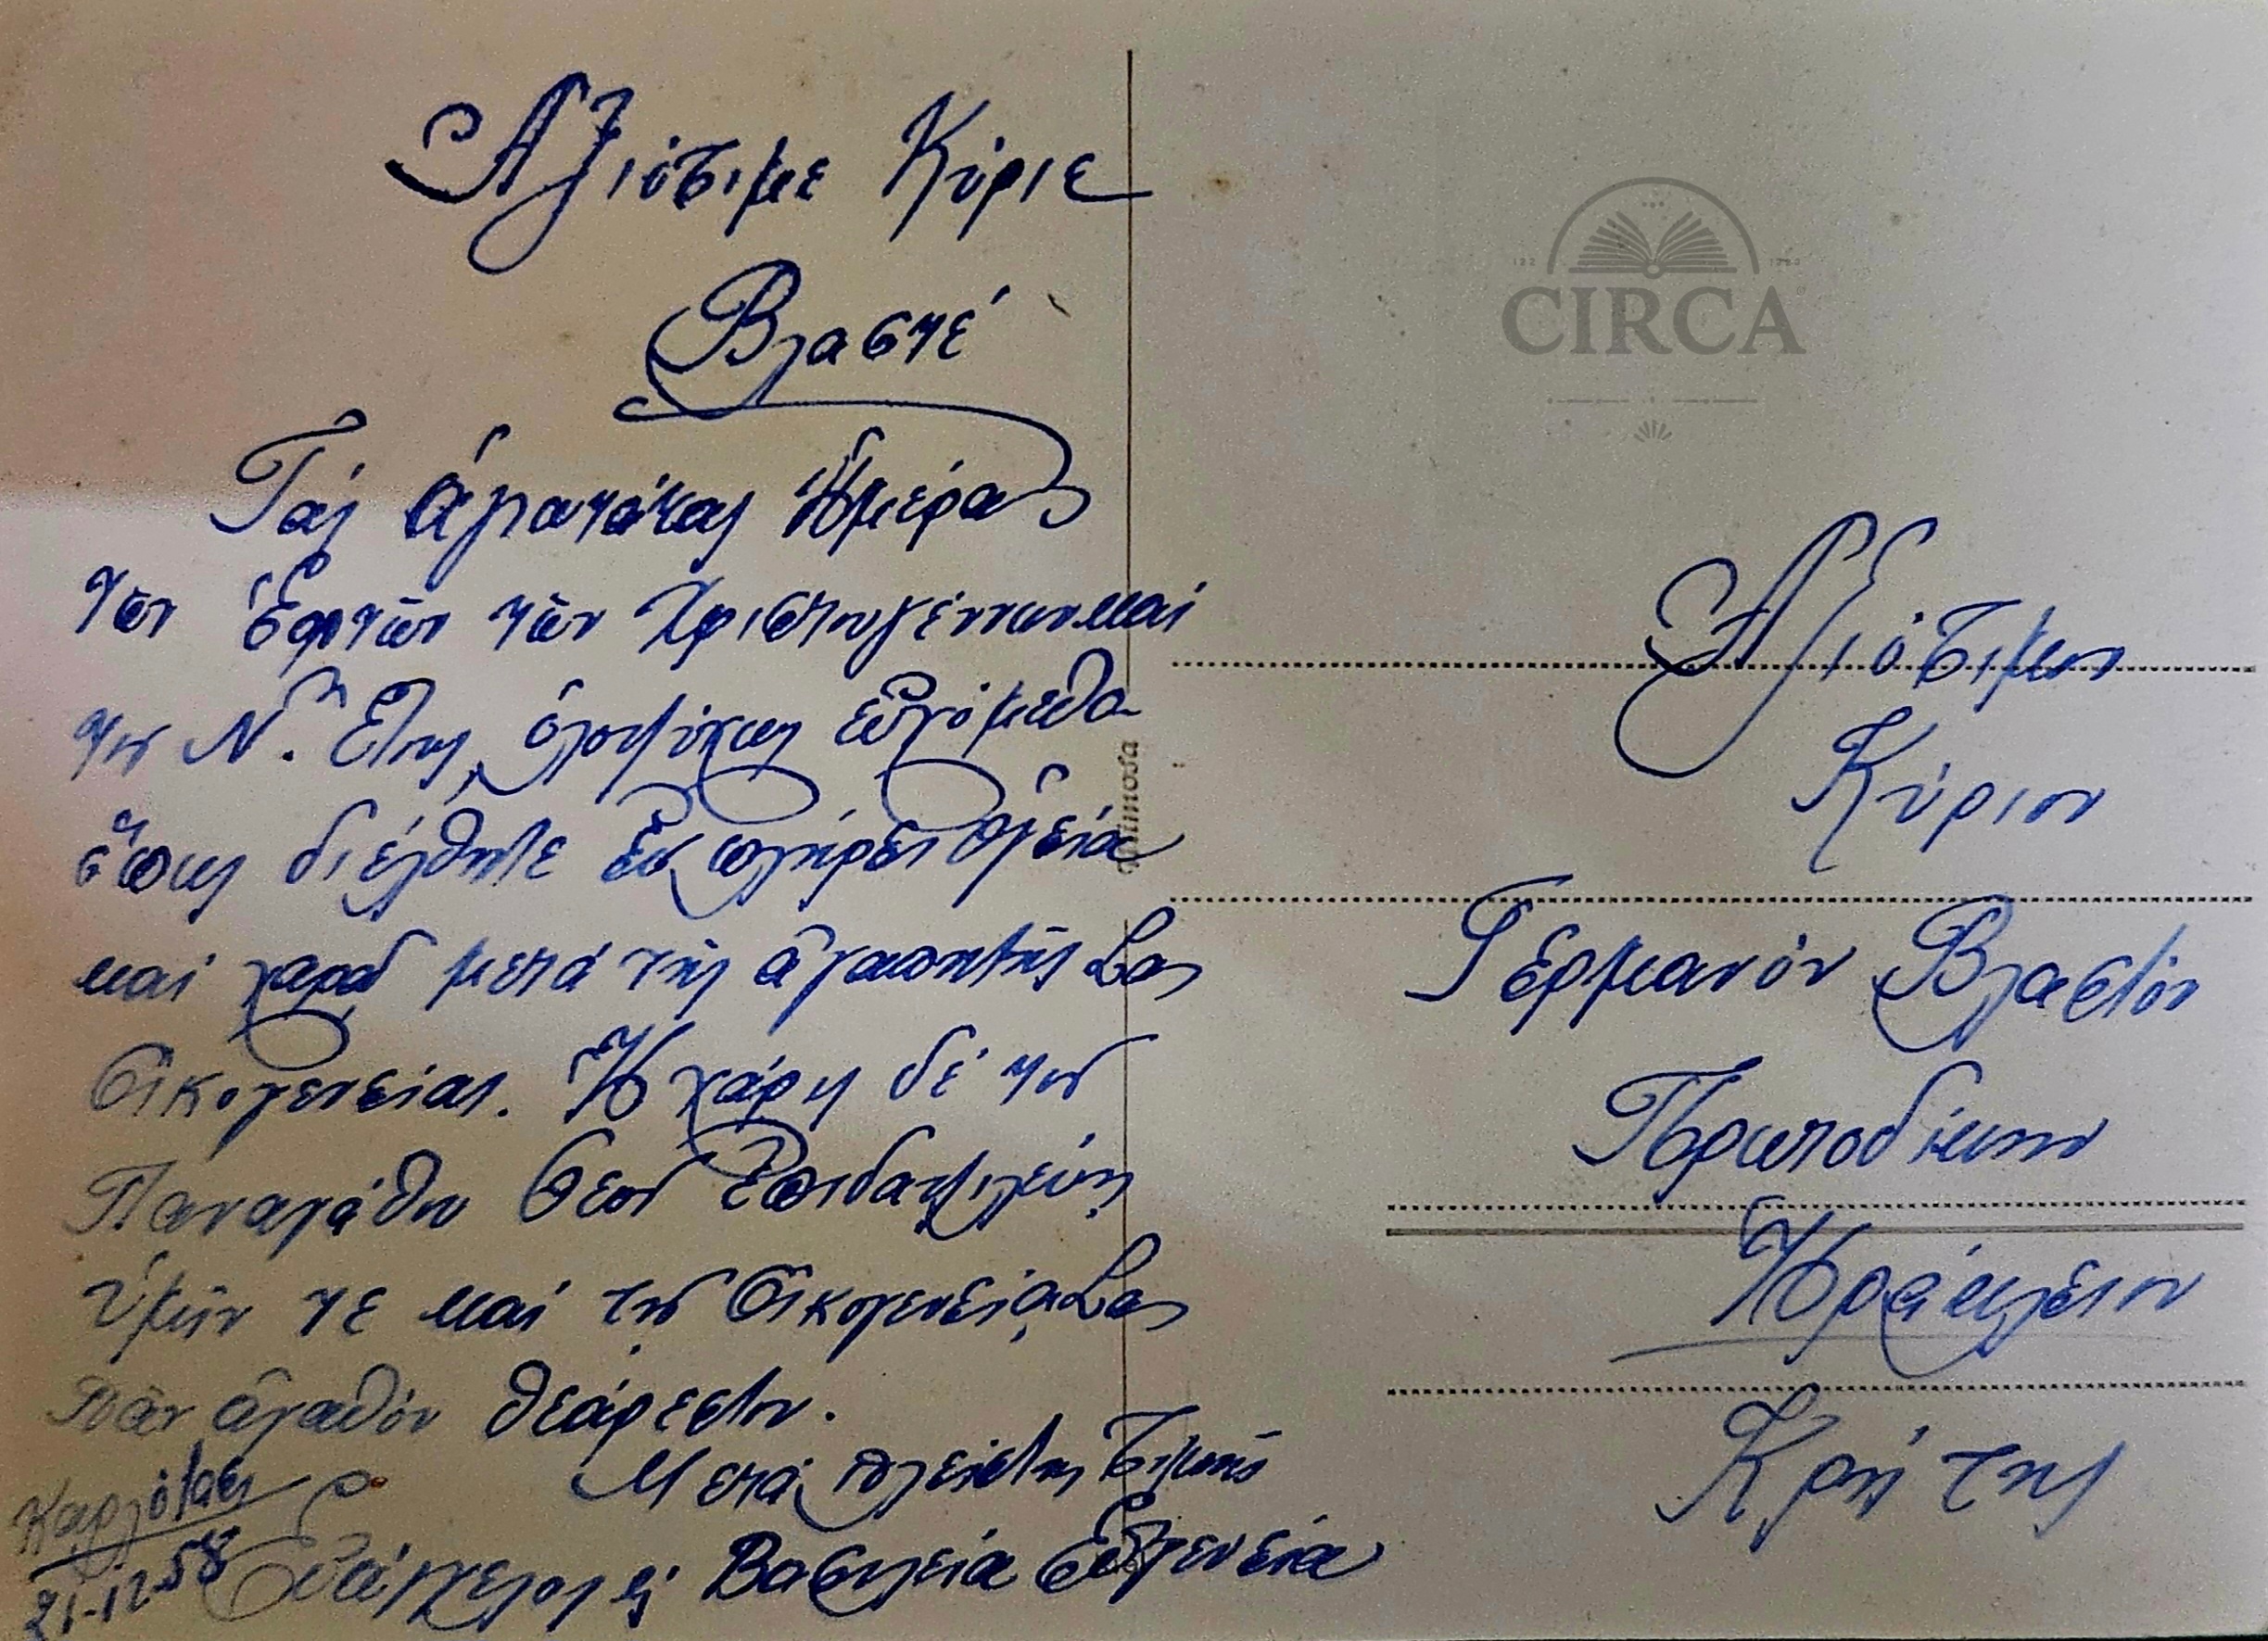 Ἀξιότιμε Κύριε
Βλαστέ
Τάς ἁγιωτάτας Ἡμέρας
τῶν Ἑορτῶν τῶν Χριστουγέννων καί
τοῦ Ν. Ἔτους, ὁλοψύχως εὐχόμεθα
ὅπως διέλθητε ἐν πλήρει ὑγείᾳ
καί χαρᾷ μετά τῆς ἀγαπητῆς Σας
Οἰκογενείας. Ἡ χάρις δέ τοῦ
Παναγάθου Θεοῦ ἐπιδαψιλεύῃ
ὑμῖν τε καί τῇ Οἰκογενείᾳ Σας
πᾶν ἀγαθόν θεάρεστον.
Μετά πλείστης τιμῆς
Καρλόβασι
21-12-58
Εὐάγγελος Βασιλεία Εὐγενεία
Mimosa
Ἀξιότιμον
Κύριον
Γερμανόν Βλαστόν
Πρωτοδίκην
Ἡράκλειον
Κρήτης
CIRCA